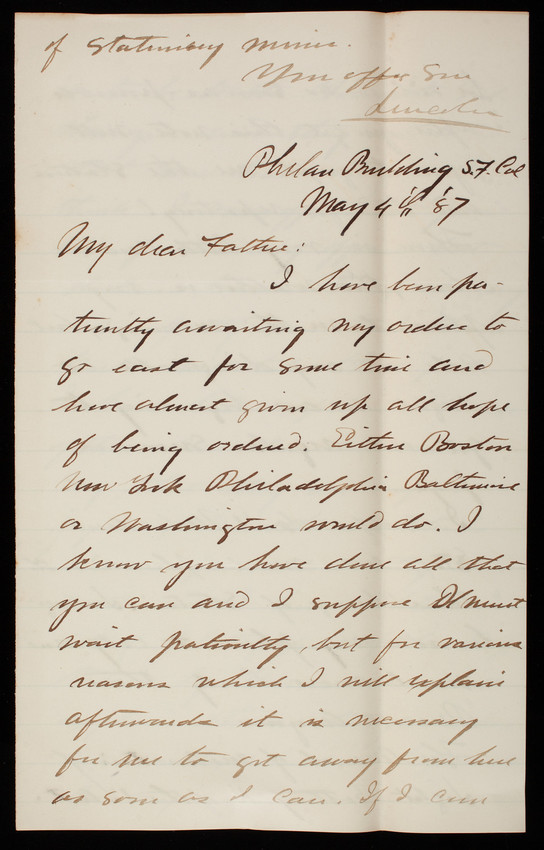 of Stationery mine.
Your aff. Son
Lincoln
Phelan Building S.F. Cal
May 4th '87
My dear Father:
I have been pa-
tiently awaiting my orders to
go east for some time and
have almost given up all hope
of being ordered. Either Boston
New York Philadelphia Baltimore
or Washington would do. I
know you have done all that
you can and I suppose I must
wait patiently, but for various
reasons which I will explain
afterwards it is necessary
for me to get away from here
as soon as I can. If I can